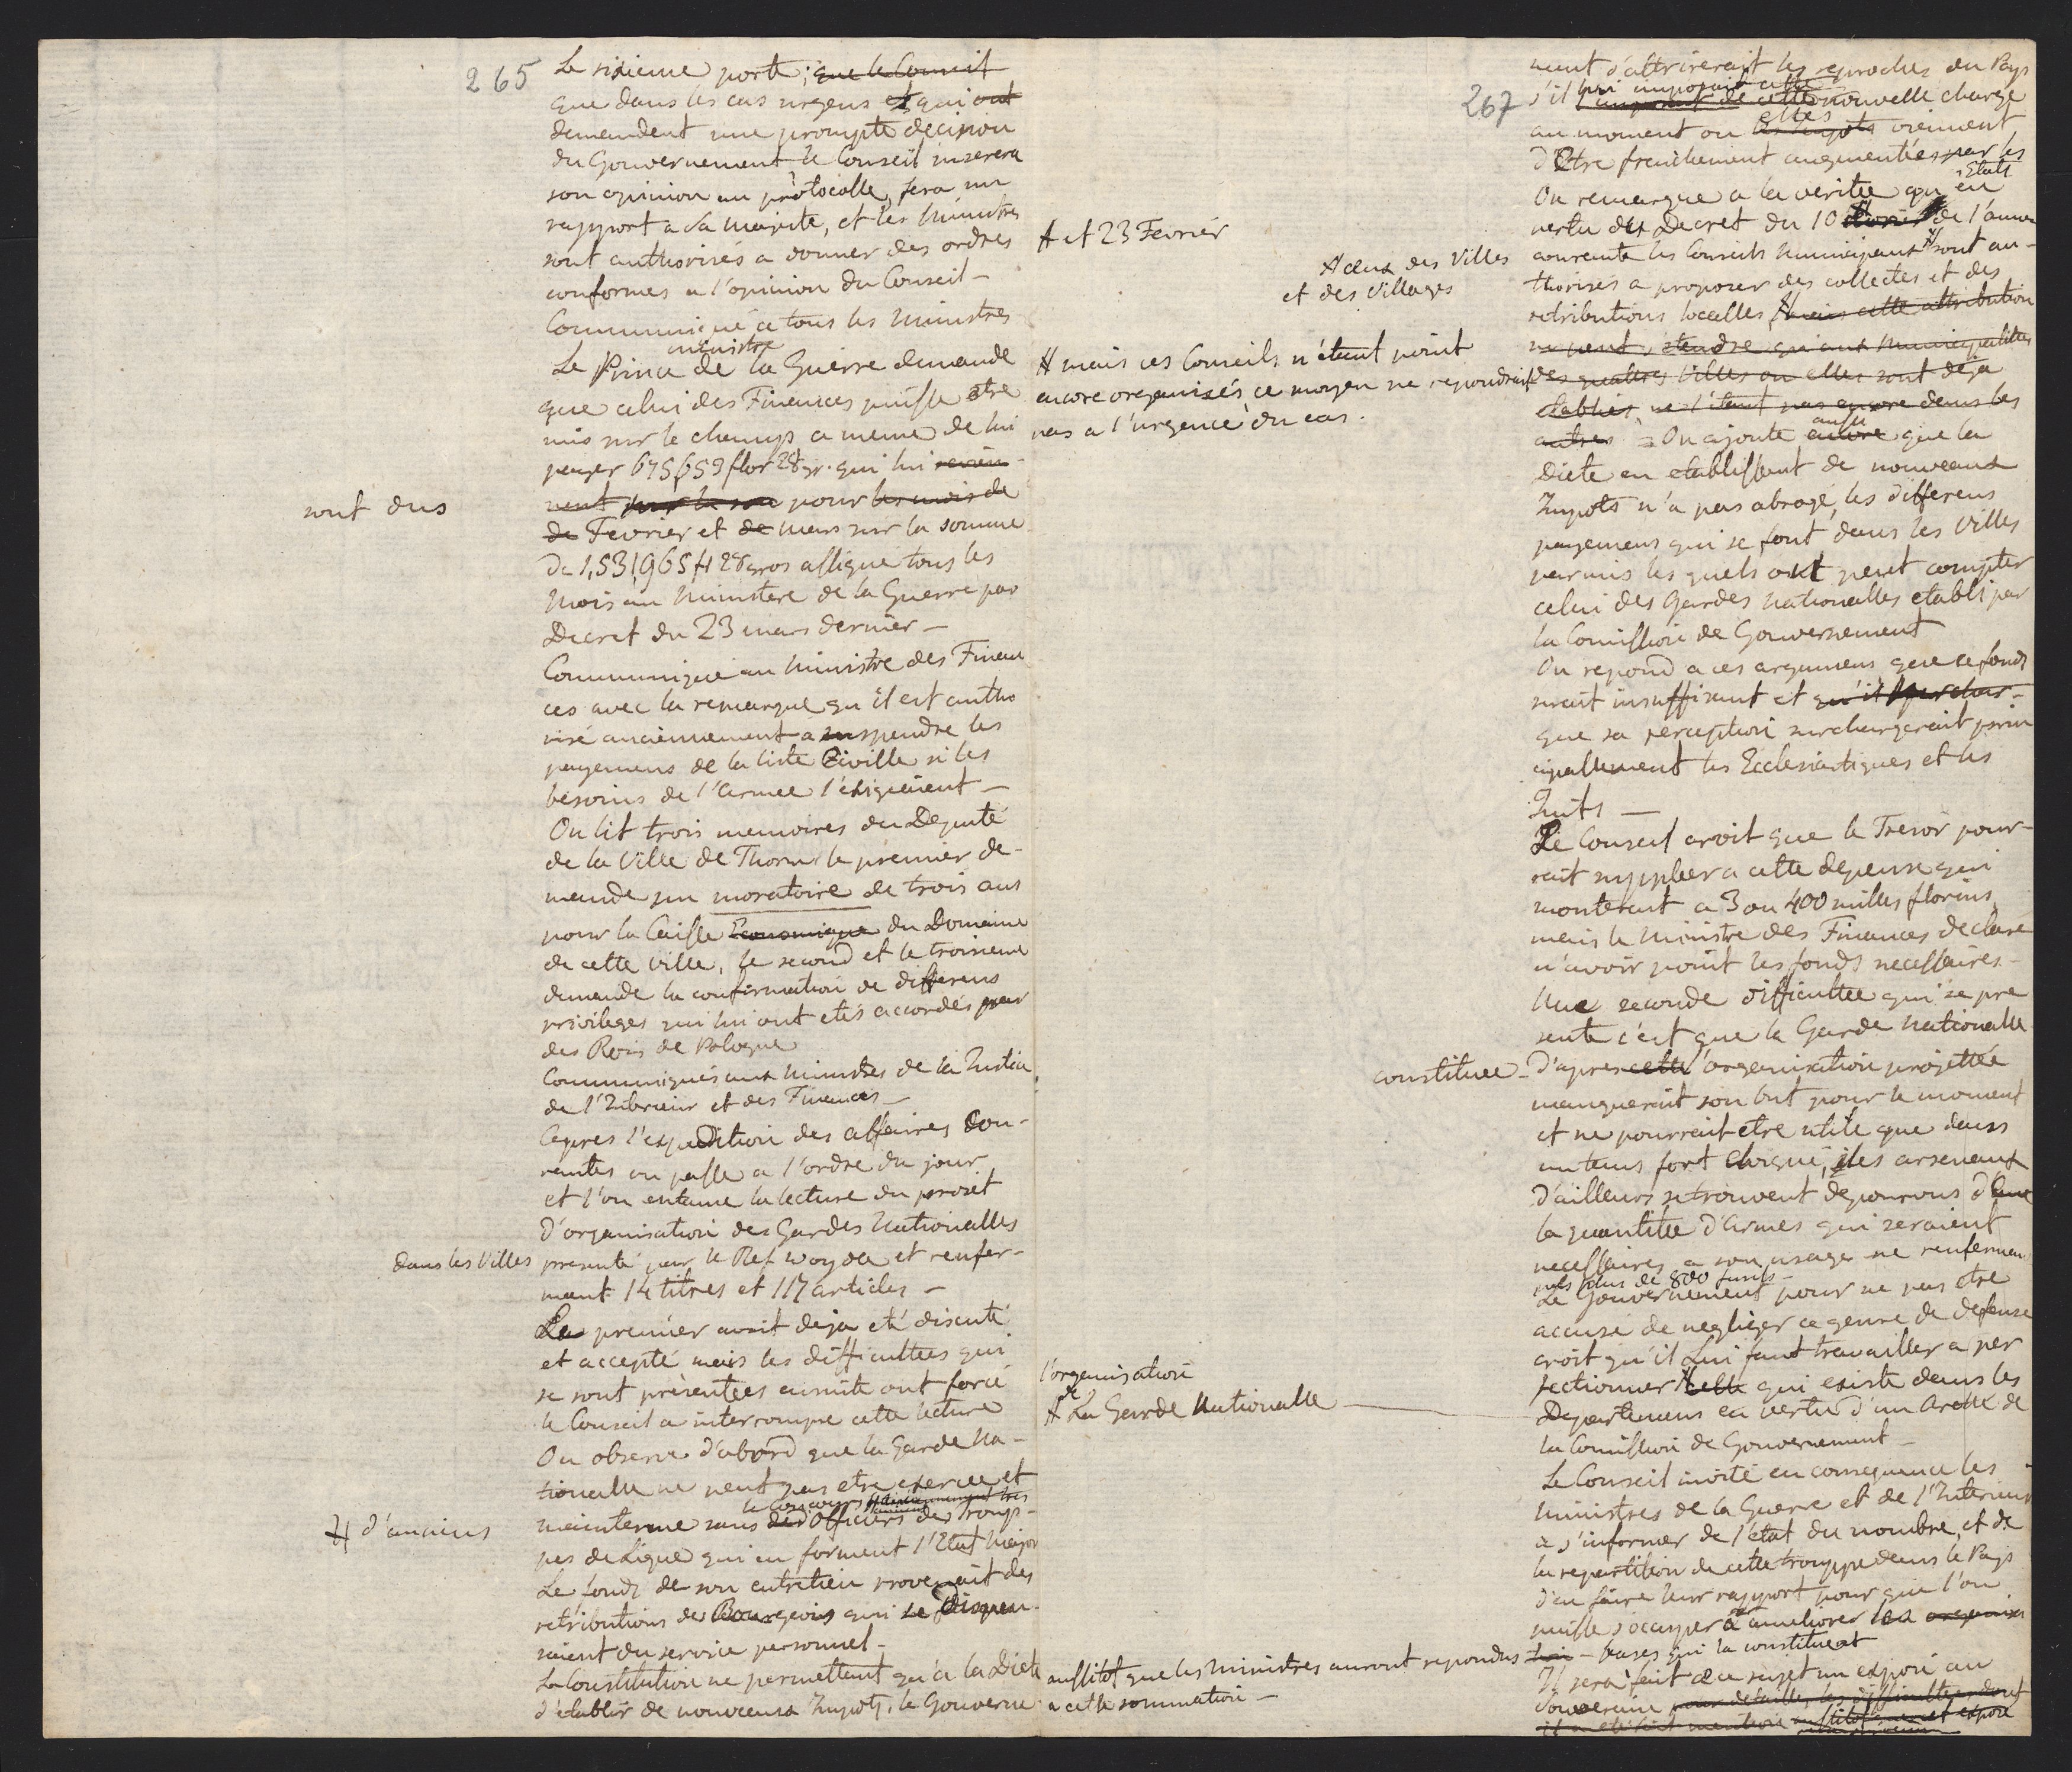 265
Le sixieme porte; que le Conseil
que dans les cas urgens et qui ont
demandent une prompte decision
du Gouvernement le Conseil inserera
son opinion au protocolle, fera un
rapport a Sa Majesté, et les Ministres
sont authorisés a donner des ordres
conformes a l'opinion du Conseil —
Communiqué a tous les Ministres
ministre
Le Prince de la Guerre demande
que celui des Finances puisse etre
mis sur le champ a meme de lui
payer 675659 flor 28 gr. qui lui
sont dus
pour les mois de
de Fevrier et de Mars sur la somme
de 1,531,965 fl 28 gros assigné tous les
Mois au Ministere de la Guerre par
Decret du 23 mars dernier —
Communiqué au Ministre des Finan
ces avec la remarque qu'il est autho
risé anciennement a suspendre les
payemens de la liste Civille si les
besoins de l'armée l'exigeaient —
On lit trois memoires du Deputé
de la Ville de Thorn le premier de-
mande un moratoire de trois ans
pour la Caisse Economique du Domaine
de cette ville, le second et le troisieme
demande la confirmation de differens
privileges qui lui ont etés accordés par
des Rois de Pologne
Communiqués aux Ministres de la Justice
de l'Interieur et des Finances —
Apres l'expedition des affaires Cou-
rantes on passe a l'ordre du jour
et l'on entame la lecture du projet
d'organisation des Gardes Nationalles
dans les Villes presenté par le Ref Woyda et renfer-
mant 14 titres et 117 articles —
Le premier avoit deja eté discuté
et accepté mais les difficultées qui
se sont présentées ensuite ont forcé
le Conseil a interrompre cette lecture
On observe d'abord que la Garde Na-
tionalle ne peut pas etre exercée et
le concours
# d'anciens
maintenue sans des Officiers des Troup-
pes de Ligne qui en forment l'Etat Major
Le fonds de son entretien provenait des
retributions des Bourgeois qui se dispen-
saient du service personnel —
La Constitution ne permettant qu'a la Diete
d'etablir de nouveaux Impots, le Gouverne
267
ment s'attirerait les reproches du Pays
s'il lui imposait cette
nouvelle charge
elles
au moment ou les impots viennent
d'Etre fraichement augmentées par les
Etats
On remarque a la verité qu'en
vertu des Decret du 10 de l'année
# et 23 Fevrier
courante les Conseils Municipaux # sont au-
# ceux des Villes
et des Villages
thorisés a proposer des collectes et des
retributions localles, # mais cette attribution
ne peut s'etendre qu'aux Municipalités
des quatres Villes ou elles sont deja
etablies, ne l'étant pas encore dans les
autres
# mais ces Conseils n'étant point
encore organisés ce moyen ne repondrait
pas a l'urgence du cas.
aussi
On ajoute encore que la
Diete en etablissant de nouveaux
Impots n'a pas abrogé, les differens
payemens qui se font dans les Villes
parmis les quels on peut compter
celui des Gardes Nationalles etabli par
la Comission de Gouvernement
On repond a ces argumens que ce fonds
serait insuffisant et qu'il surchar-
que sa perception surchargerait prin
cipallement les Ecclesiastiques et les
Juifs —
Le Conseil croit que le Tresor pour-
rait suppleer a cette depense qui
monterait a 3 ou 400 milles florins
mais le Ministre des Finances declare
n'avoir point les fonds necessaires —
Une seconde difficultée qui se pre
sente c'est que la Garde Nationalle
constituee — d'apres cette l'organisation projettée
manquerait son but pour le moment
et ne pourrait etre utile que dans
un tems fort eloigné, les arsenaux
d'ailleurs se trouvent depourvus de
la quantitée d'armes qui seraient
necessaires a son usage ne renferman
pas plus de 800 fusils —
Le Gouvernement pour ne pas etre
accusé de negliger ce genre de defense
croit qu'il lui faut travailler a per
fectionner # celle qui existe dans les
l'organisation
de
# La Garde Nationalle
Departemens en vertu d'un Arette de
la Comission de Gouvernement —
Le Conseil invite en consequence les
Ministres de la Guerre et de l'Interieur
a s'informer de l'état du nombre, et de
la repartition de cette trouppe dans le Pays
d'en faire leur rapport pour que l'on
puisse s'occuper a ameliorer les
bases qui la constituent
aussitot que les Ministres auront repondus
a cette sommation —
Il sera fait a ce sujet un exposé au
Souverain pour detailler les difficultées dont
il a eté fait mention aussitot